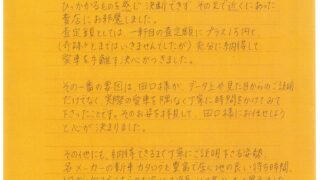 ひっかかるものを感じ決断できず、その足で近くにあった
貴店にお邪魔しました。
査定額としては、一軒目の査定額にプラス1万円で、
(奇跡とまではいきませんでしたが) 充分に納得して
愛車を手離す決心がつきました。
その一番の要因は、田口様が、データ上や見た目からのご説明
だけでなく、実際の愛車を隅なく丁寧に時間をかけてみて
下さったことです。そのお姿を拝見して、田口様にお任せしよう
と心が決まりました。
その他にも、納得できるまで丁寧にご説明下さる姿勢
各メーカーの新車カタログも豊富で居心地の良い待ち時間、